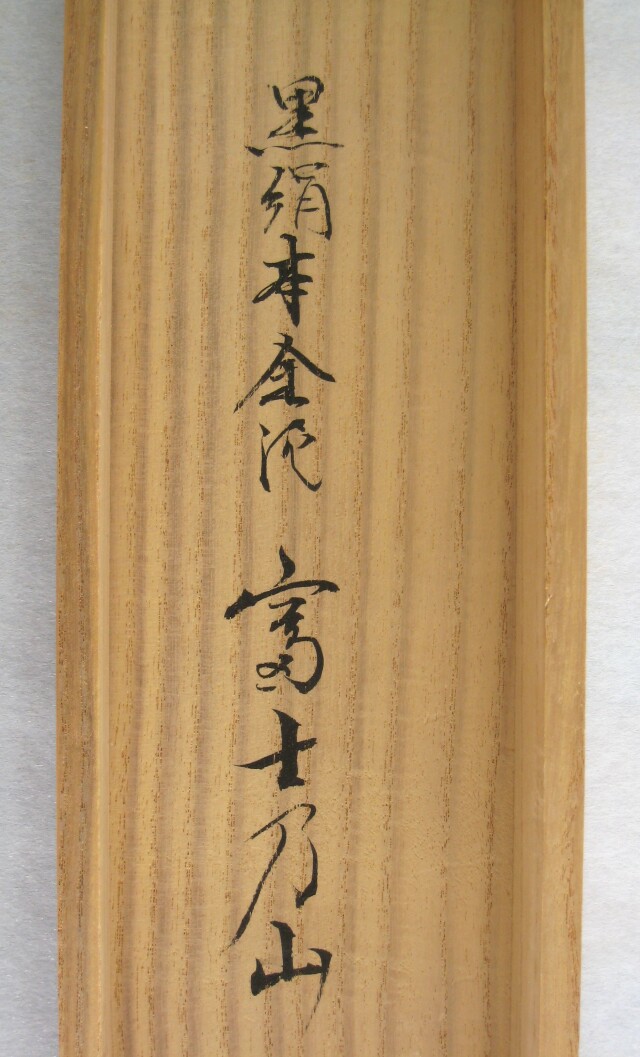 黒絹本金泥 富士乃山